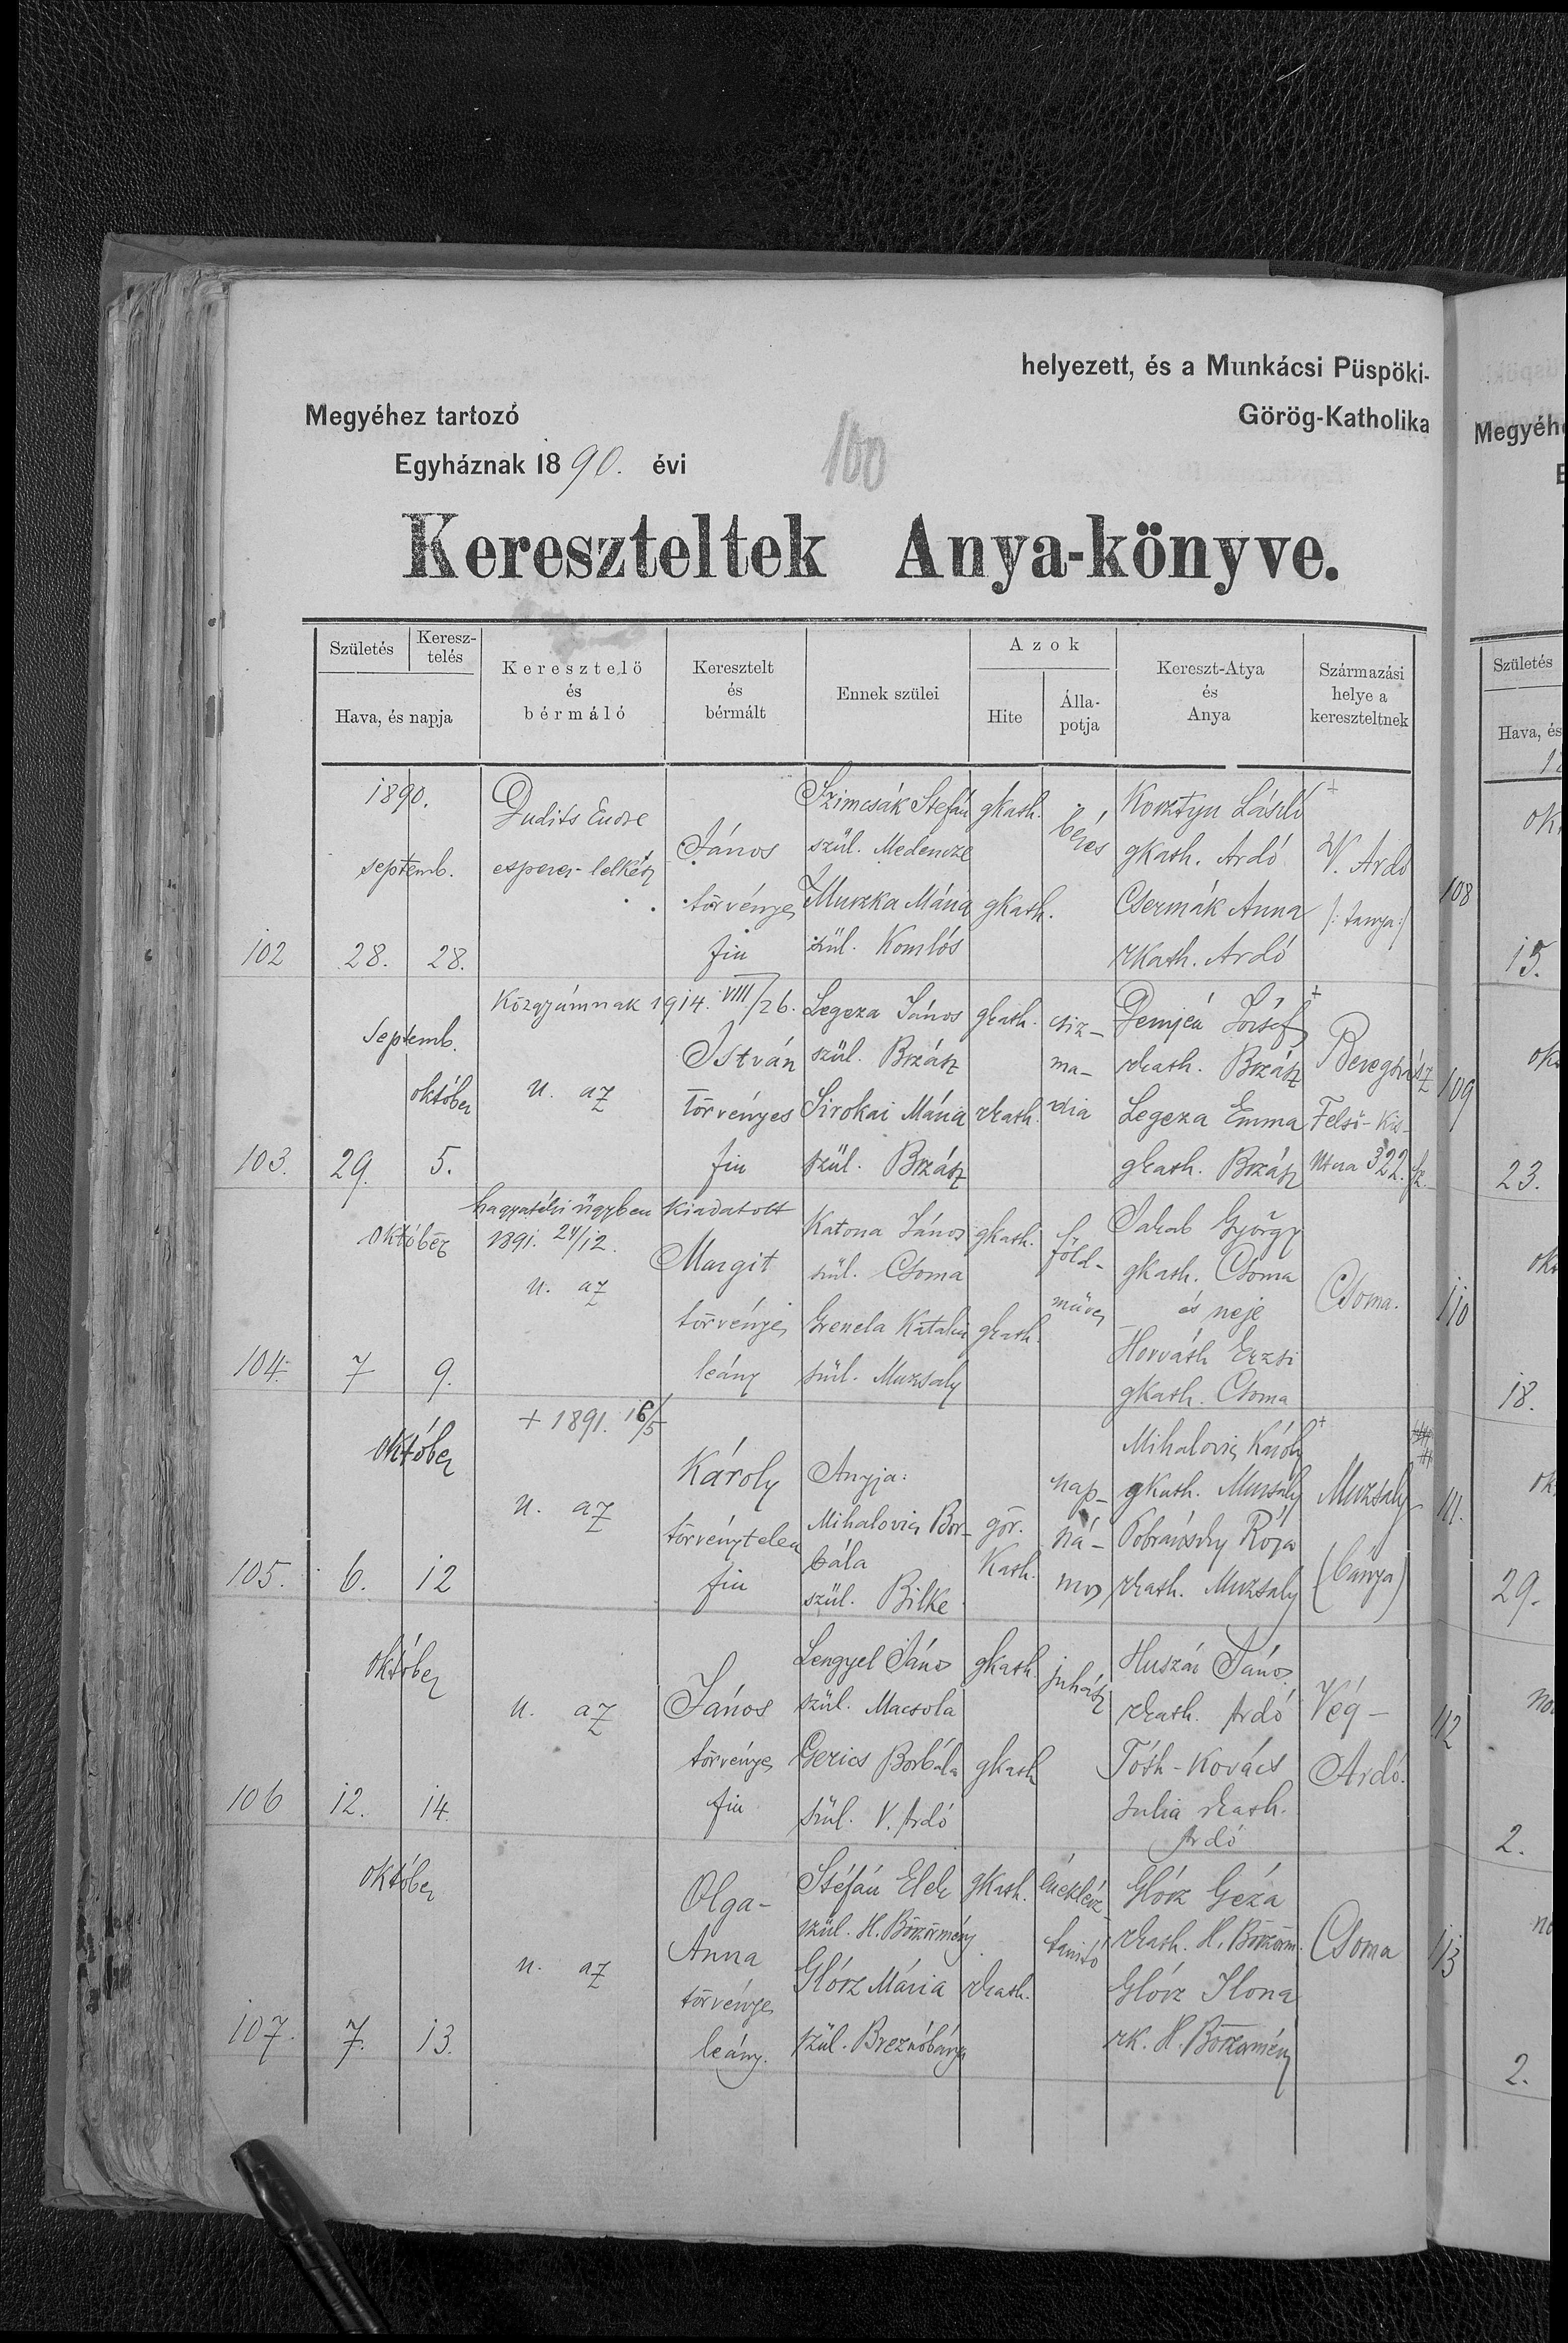 helyezett, és a Munkácsi Püspöki-
Megyéhez tartozó Görög-Katholika
Egyháznak 1890. évi
100
Kereszteltek Anya-könyve.
Születés Keresz-telés Keresztelö és bérmáló Keresztelt és bérmált Ennek szülei Azok Kereszt-Atya és Anya Származási helye a kereszteltnek
Hava, és napja Hite Álla-potja
1890. Dudits Endre Szimcsák Stefán gkath. béres Kosztyu László
septemb. esperes-lelkész János szül. Medencze gkath. Ardó V. Ardó
törvényes Muszka Mária gkath. Csermák Anna /: tanya :/
102 28. 28. fiu szül. Komlós rkath. Ardó
Közgyámnak 1914. VIII/26. Legeza János gkath. csiz- Demjén József
Septemb. István szül. Brzász ma- rkath. Brzász Beregszász
október u. az törvényes Sirokai Mária rkath. dia Legeza Emma Felső-Kis-
103. 29. 5. fiu szül. Brzász gkath. Brzász utcza 322. sz.
hagyatéki ügyben kiadatott
október 1891. 24/12. Katona János gkath. föld- Jakab György
Margit szül. Csoma gkath. Csoma
u. az műves és neje Csoma.
törvényes Katalin gkath. Horváth Erzsi
104. 7 9. leány szül. Muzsaly gkath. Csoma
+ 1891. 16/5
október Mihalovics Károly
Károly Anyja: nap- gkath. Muzsaly Muzsaly
u. az törvénytelen Mihalovics Bor- gör. szá- Róza
bála kath. mos rkath. Muzsaly (bánya)
105. 6. 12 fiu szül. Bilke
október Lengyel János gkath. juhász Huszár János
u. az János szül. Macsola rkath. Ardó Vég-
törvényes Gerics Borbála gkath Tóth-Kovács Ardó.
106 12. 14. fiu szül. V. Ardó Julia rkath.
Ardó
október Olga- Stéfán Elek gkath. énekész Glósz Géza
Anna szül. H. Böszörmény tanító rkath. H. Böszörm. Csoma
u. az törvényes Glósz Mária rkath. Glósz Ilona
107. 7. 13. leány. szül. Breznóbánya rk. H. Böszörmény
Megyéh
Születés
Hava, és
108
15.
109
23.
110
18.
111.
29.
112
2.
113
2.